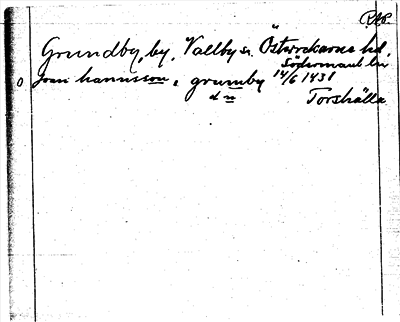 RAP.
Grundby, by, Vallby sn Österrekarne hd,
Södermanl. län
joan hannisson, grumby 14/6 1431
d n Torshälla